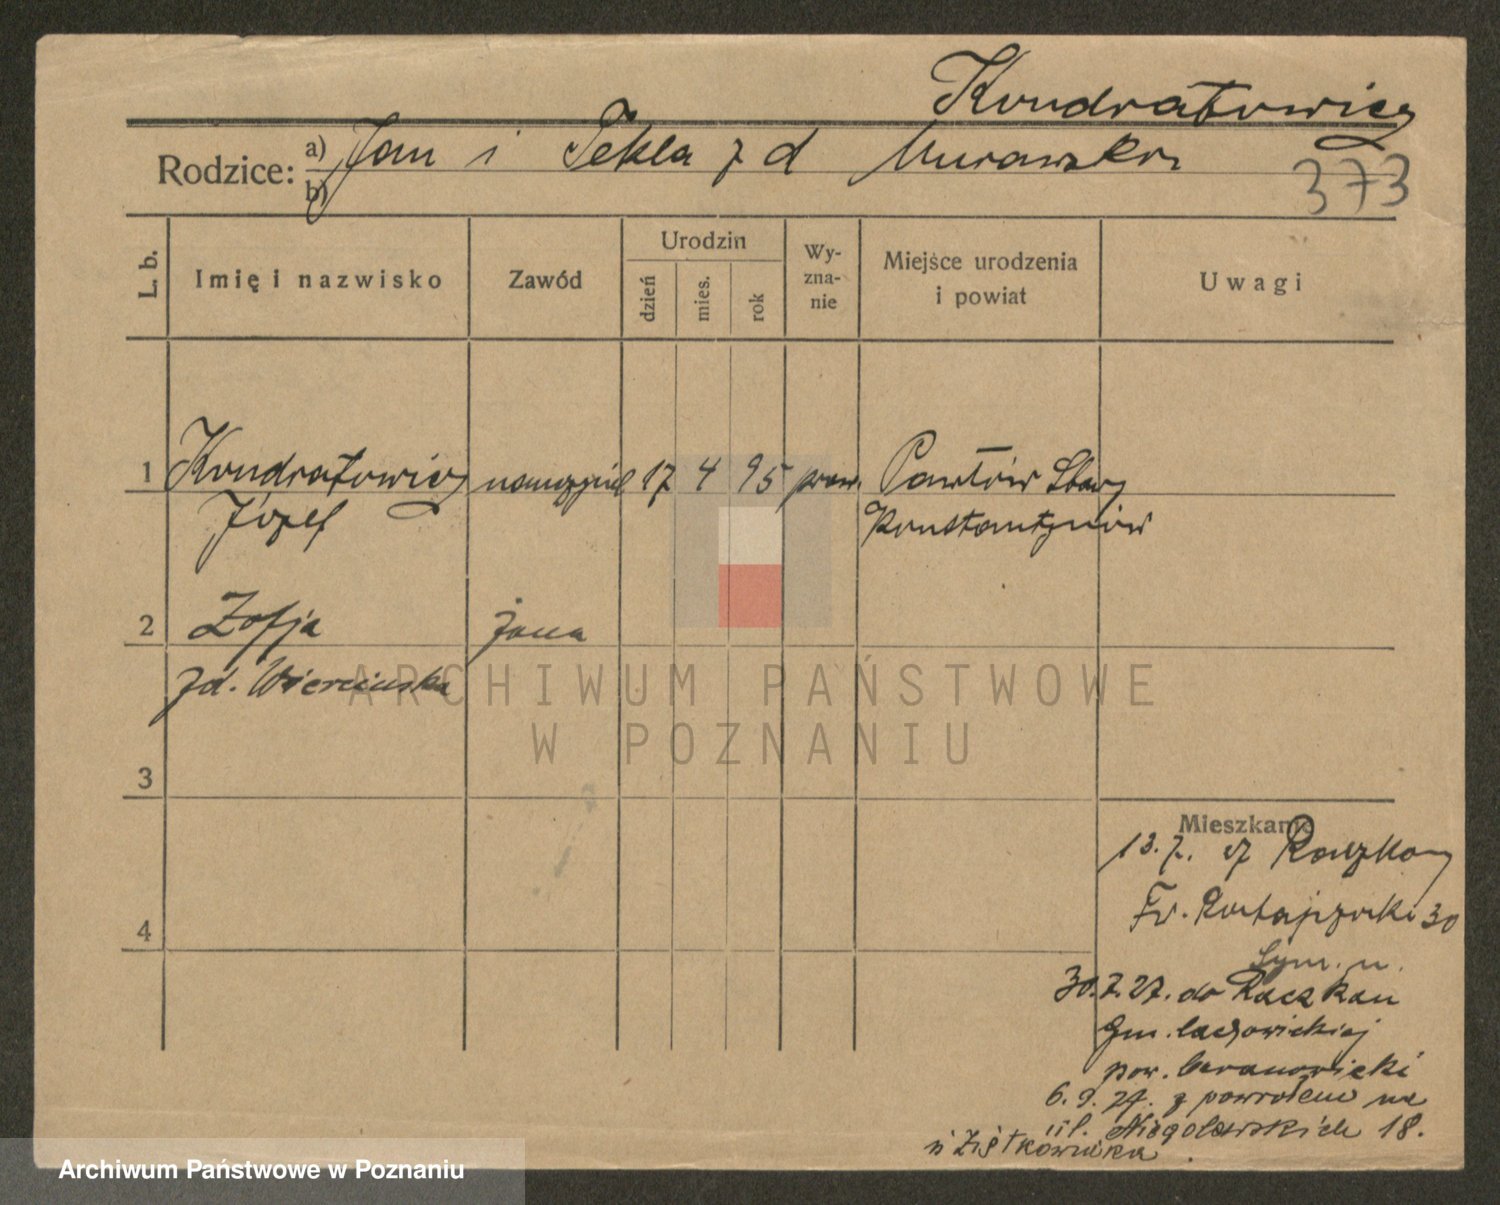 Kondratowicz
Rodzice: a) Jan i Tekla z d Murawska
b)
373
L. b.
Imię i nazwisko
Zawód
Urodzin
dzień
mies.
rok
Wy-
zna-
nie
Miejsce urodzenia
i powiat
Uwagi
1 Kondratowicz nauczyciel 17 4 95 praw. Pawłów Stary
Józef Konstantynów
2 Zofja żona
z d. Wiercińska
3
4
Mieszkanie
13.7. 27 Raczkany
Fr. Ratajczaka 30
30.7.27. do Raczkan
gm. lachowickiej
pow. baranowicki
6.9.27. z powrotem na
ul. Niegolewskich 18.
u Ziętkowiaka.
ARCHIWUM PAŃSTWOWE
W POZNANIU
Archiwum Państwowe w Poznaniu